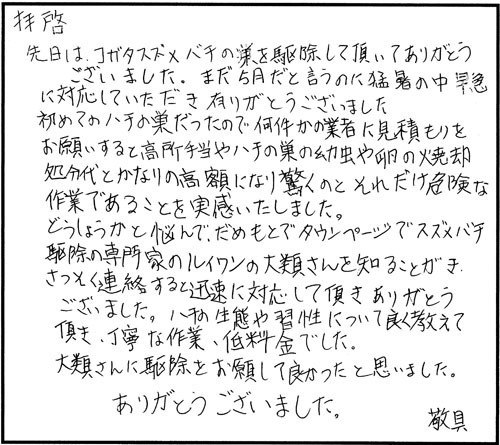 拝啓
先日は、コガタスズメバチの巣を駆除して頂いてありがとう
ございました。まだ5月だと言うのに猛暑の中早急
に対応していただき有りがとうございました
初めてのハチの巣だったので何件かの業者に見積もりを
お願いすると高所手当やハチの巣の幼虫や卵の焼却
処分代とかなりの高額になり驚くのとそれだけ危険な
作業であることを実感いたしました。
どうしようかと悩んで、だめもとでタウンページでスズメバチ
駆除の専門家のルイワンの大類さんを知ることがき、
さっそく連絡すると迅速に対応して頂きありがとう
ございました。ハチの生態や習性について良く教えて
頂き、丁寧な作業、低料金でした。
大類さんに駆除をお願して良かったと思いました。
ありがとうございました。
敬具